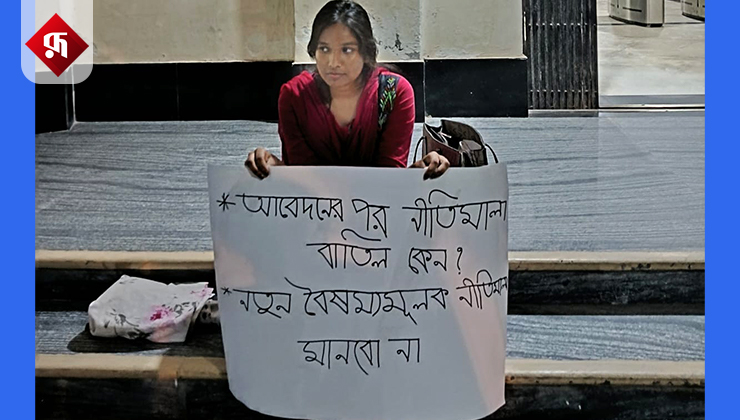 রূ
* আবেদনের পর নীতিমালা
বাতিল কেন?
* নতুন বৈষম্যমূলক নীতিমালা
মানবো না